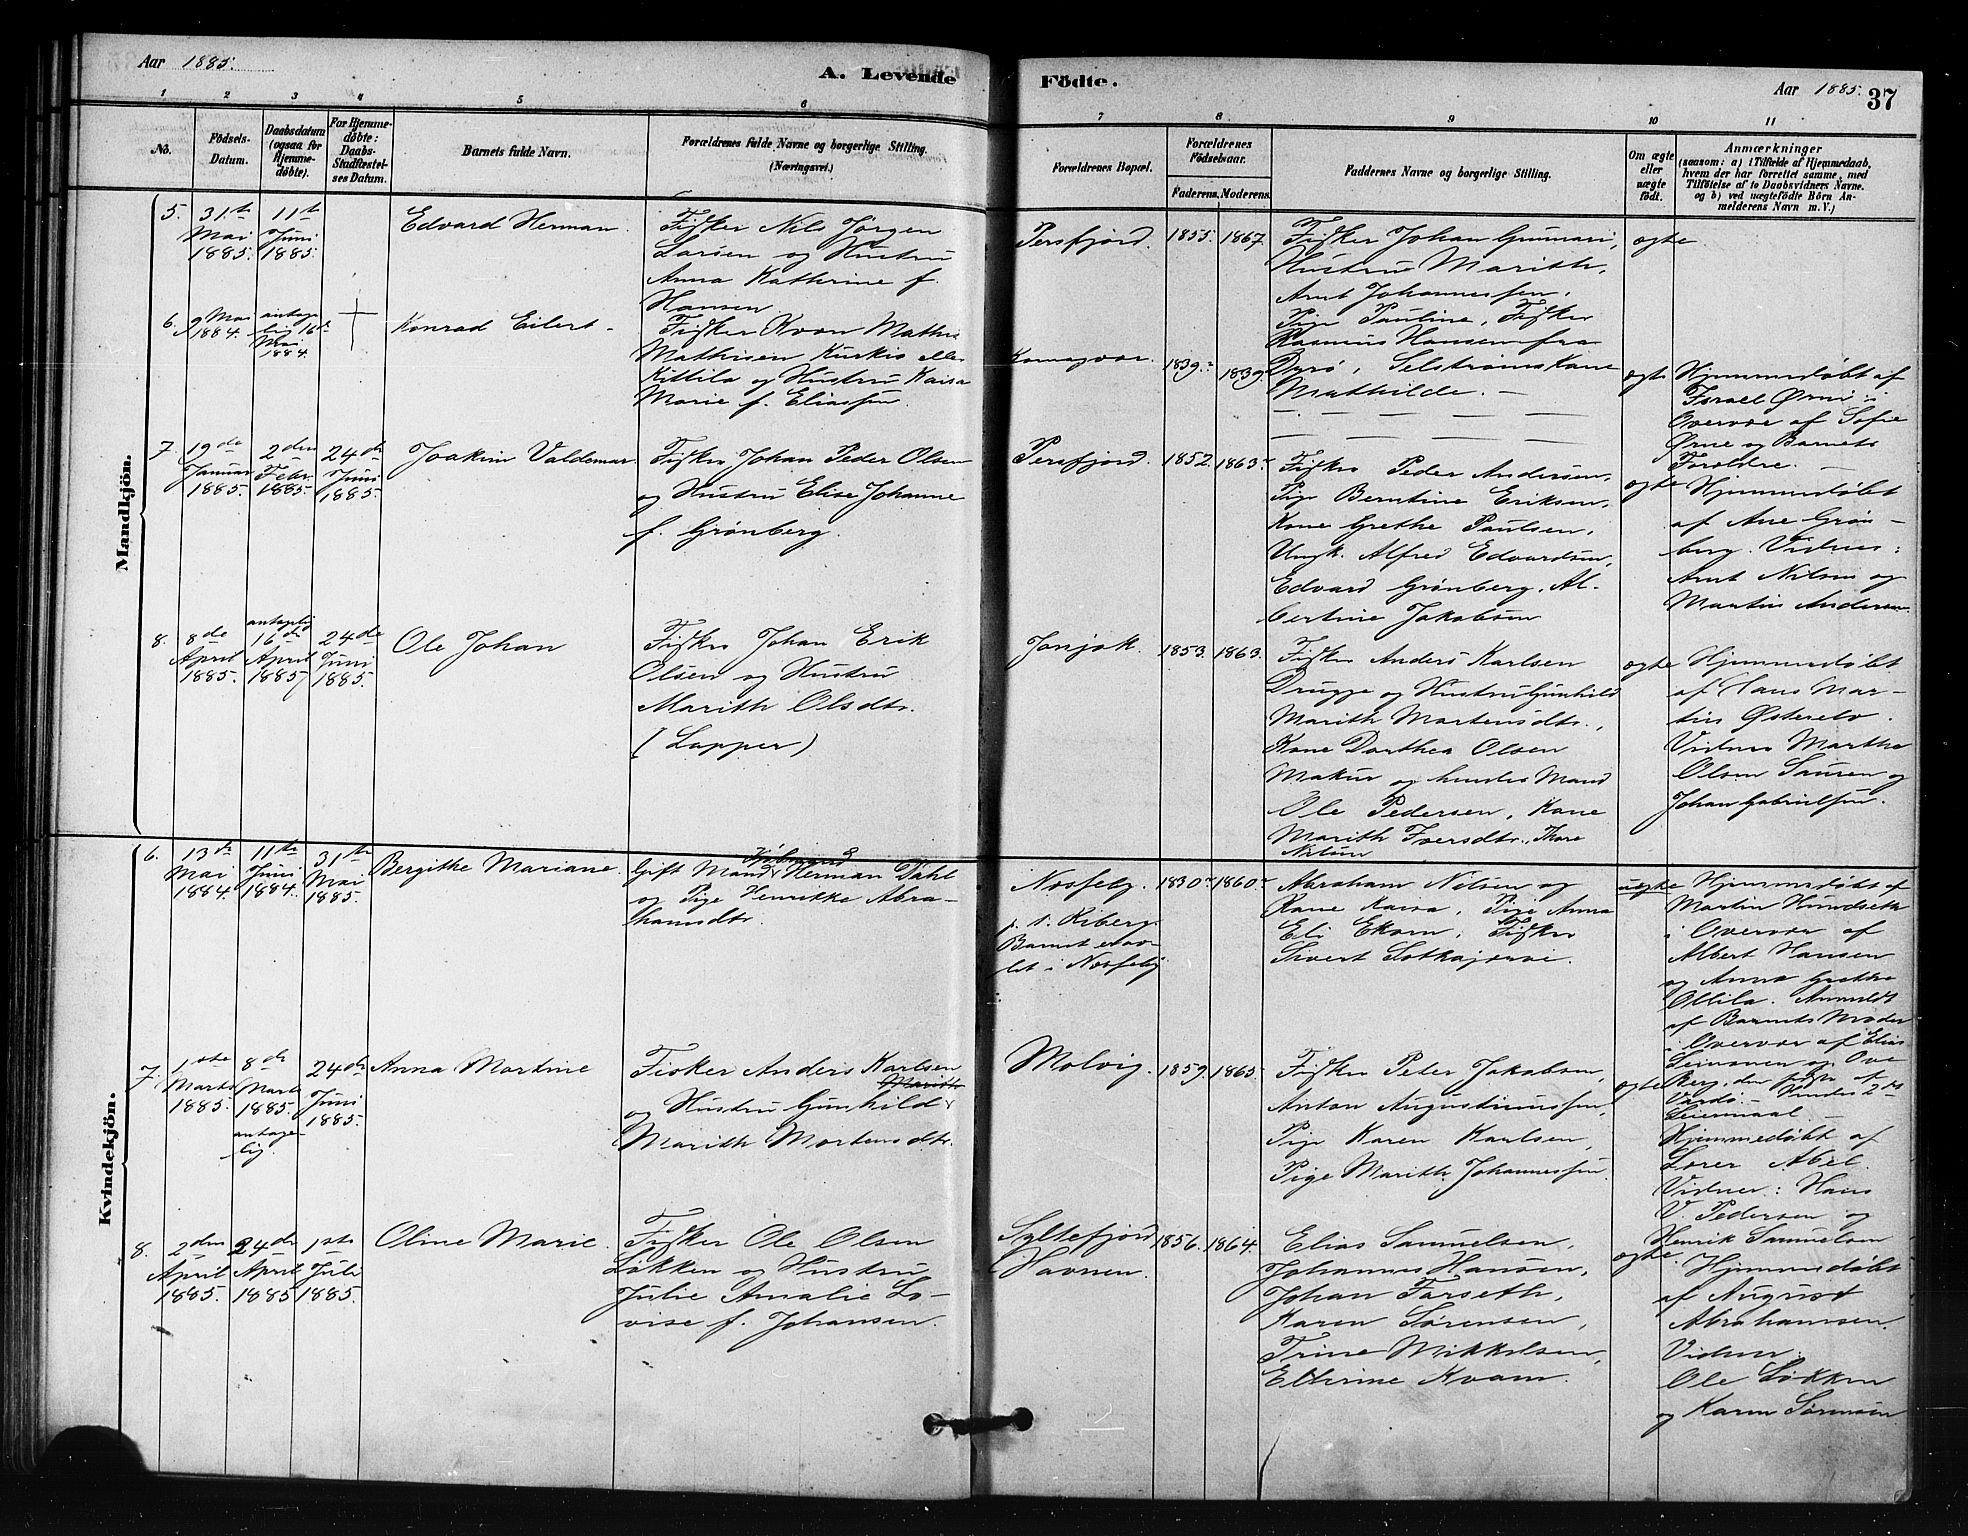 Aar 1885.
A. Levende
Födte.
Aar 1885.
37
1 2 3 4 5 6
7 8 9 10 11
No.
Födsels-
Datum.
Daabsdatum
(ogsaa for
Hjemme-
døbte).
For Hjemme-
døbte:
Daabs-
Stadfæstel-
ses Datum.
Barnets fulde Navn.
Forældrenes fulde Navne og borgerlige Stilling.
(Næringsvei.)
Forældrenes Bopæl.
Forældrenes
Födselsaar.
Faderens. Moderens.
Faddernes Navne og borgerlige Stilling.
Om ægte
eller
uægte
født.
Anmærkninger
(saasom: a) i Tilfælde af Hjemmedaab,
hvem der har forrettet samme, med
Tilföielse af to Daabsvidners Navne.
og b) ved uægtefödte Börn An-
melderens Navn m. V.)
Mandkjön.
5.
31te
Mai
1885.
11te
Juni
1885.
Edvard Herman.
Fisker Nils Jørgen
Larsen og Hustru
Anna Kathrine f.
Hansen
Persfjord.
1855.
1867.
Fisker Johan Gunnari,
Hustru Marith,
Arnt Johannessen,
Pige Pauline, Fisker
Rasmus Hansen fra
Dyrø, Selstrøms Kone
Mathilde. —
ægte
6.
9 Mai
1884.
antage-
lig 16de
Mai
1884
Konrad Eilert
Fisker Kvæn Mathis
Mathisen Kurkio eller
Kittila og Hustru Kaisa
Marie f. Eliassen.
Komagvær.
1839.
1839.
ægte
Hjemmedøbt af
Israel Ørne i
Overvær af Sofie
Ørne og Barnets
Foreldre. —
7.
19de
Januar
1885.
2den
Febr.
1885.
24de
Juni
1885.
Joakim Valdemar.
Fisker Johan Peder Olsen
og Hustru Elise Johanne
f. Grønberg.
Persfjord.
1852.
1863.
Fisker Peder Andersen,
Pige Berntine Eriksen,
Kone Grethe Paulsen,
Ungk. Alfred Edvardsen,
Edvard Grønberg, Al-
bertine Jakobsen
ægte
Hjemmedøbt
af Ane Grøn-
berg. Vidner:
Arnt Nilsen og
Martin Andersen.
8.
8de
April
1885.
antagelig
16de
April
1885
24de
Juni
1885.
Ole Johan
Fisker Johan Erik
Olsen og Hustru
Marith Olsdtr.
(Lapper)
Jonjok.
1853.
1863.
Fisker Anders Karlsen
Drugge og Hustru Gunhild
Marith Mortensdtr.,
Kone Dorthea Olsen
Makur og hendes Mand
Ole Pedersen, Kone
Marith Iversdtr. Thore
Nilsen
ægte
Hjemmedøbt
af Hans Mar-
tin Østerelv.
Vidner Marthe
Olsen Sauren og
Johan Gabrielsen.
Kvindekjön.
6.
13de
Mai
1884.
11te
Juni
1884.
31te
Mai
1885.
Bergithe Mariane.
Kjøbmand
Gift Mand Herman Dahl
og Pige Henrikke Abra-
hamsdtr.
Nosseby.
p. t. Kiberg.
Barnet er av-
let i Nosseby
1830.
1860.
Abraham Nilsen og
Kone Kaisa, Pige Anna
Eli Ekorn, Fisker
Sivert Sotkajærvi.
uægte
Hjemmedøbt af
Martin Hundseth
i Overvær af
Albert Hansen
og Anna Grethe
Ollila. Anmeldt
af Barnets Moder
i Overvær af Elias
Leinonen og Ove
Berg, den første af
Vardø. — Hendes 2det
Leiermaal —
7.
1ste
Marts
1885.
8de
Marts
1885.
antage-
lig.
24de
Juni
1885.
Anna Martine
Fisker Anders Karlsen
og Hustru Gunhild
Marith Mortensdtr.
Molvig.
1859.
1865.
Fisker Peter Jakobsen,
Anton Augustinussen,
Pige Karen Karlsen,
Pige Marith Johannessen.
ægte
Hjemmedøbt af
Lærer Abel.
Vidner: Hans
V Pedersen og
Henrik Samuelsen
8.
2den
April
1885.
24de
April
1885
1ste
Juli
1885.
Oline Marie.
Fisker Ole Olsen
Løkken og Hustru
Julie Amalie Lo-
vise f. Johansen.
Syltefjord
Havnen.
1856.
1864.
Elias Samuelsen,
Johannes Hansen,
Johan Forseth,
Karen Sørensen,
Trine Mikkelsen,
Ellerine Kvam.
ægte.
Hjemmedøbt
af August
Abrahamsen.
Vidner:
Ole Løkken
og Karen Sørensen